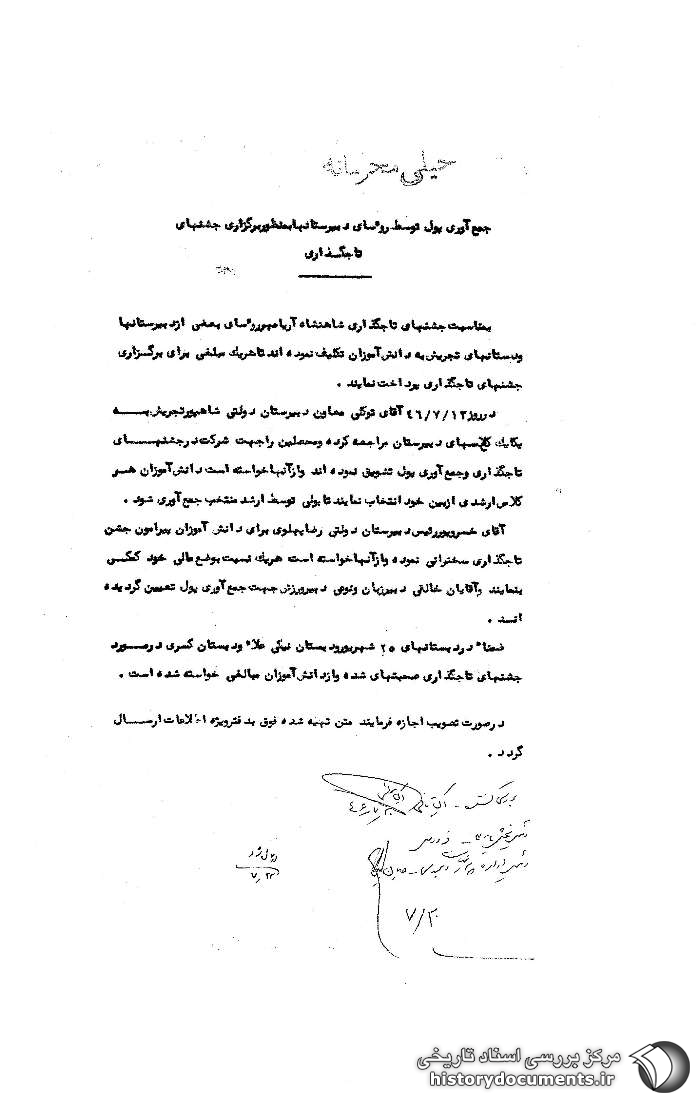 خیلی محرمانه
جمع آوری پول توسط روٴسای دبیرستانها بمنظور برگزاری جشنهای
تاجگذاری
بمناسبت جشنهای تاجگذاری شاهنشاه آریامهر روٴسای بعضی از دبیرستانها
ودبستانهای تجریش به دانش آموزان تکلیف نموده اند تا هریك مبلغی برای برگزاری
جشنهای تاجگذاری پرداخت نمایند .
در روز ۴۶/۷/۱۲ آقای توکلی معاون دبیرستان دولتی شاهپور تجریش به
یکایك کلاسهای دبیرستان مراجعه کرده ومحصلین را جهت شرکت در جشنهای
تاجگذاری وجمع آوری پول تشویق نموده اند وازآنها خواسته است دانش آموزان هر
کلاس ارشدی ازبین خود انتخاب نمایند تا پولی توسط ارشد منتخب جمع آوری شود .
آقای خسروپور رئیس دبیرستان دولتی رضاپهلوی برای دانش آموزان پیرامون جشن
تاجگذاری سخنرانی نموده وازآنها خواسته است هریك نسبت بوضع مالی خود کمکی
بنمایند وآقایان خالقی دبیر زبان و دبیر ورزش جهت جمع آوری پول تعیین گردیده
اند .
ضمناً در دبستانهای ۲۵ شهریور ودبستان نیکی علاء ودبستان کسری در مورد
جشنهای تاجگذاری صحبتهای شده وازدانش آموزان مبالغی خواسته شده است .
درصورت تصویب اجازه فرمایند متن تهیه شده فوق به دفتر ویژه اطلاعات ارسال
گردد .
۷/۲۰
مرکز بررسی اسناد تاریخی
historydocuments.ir